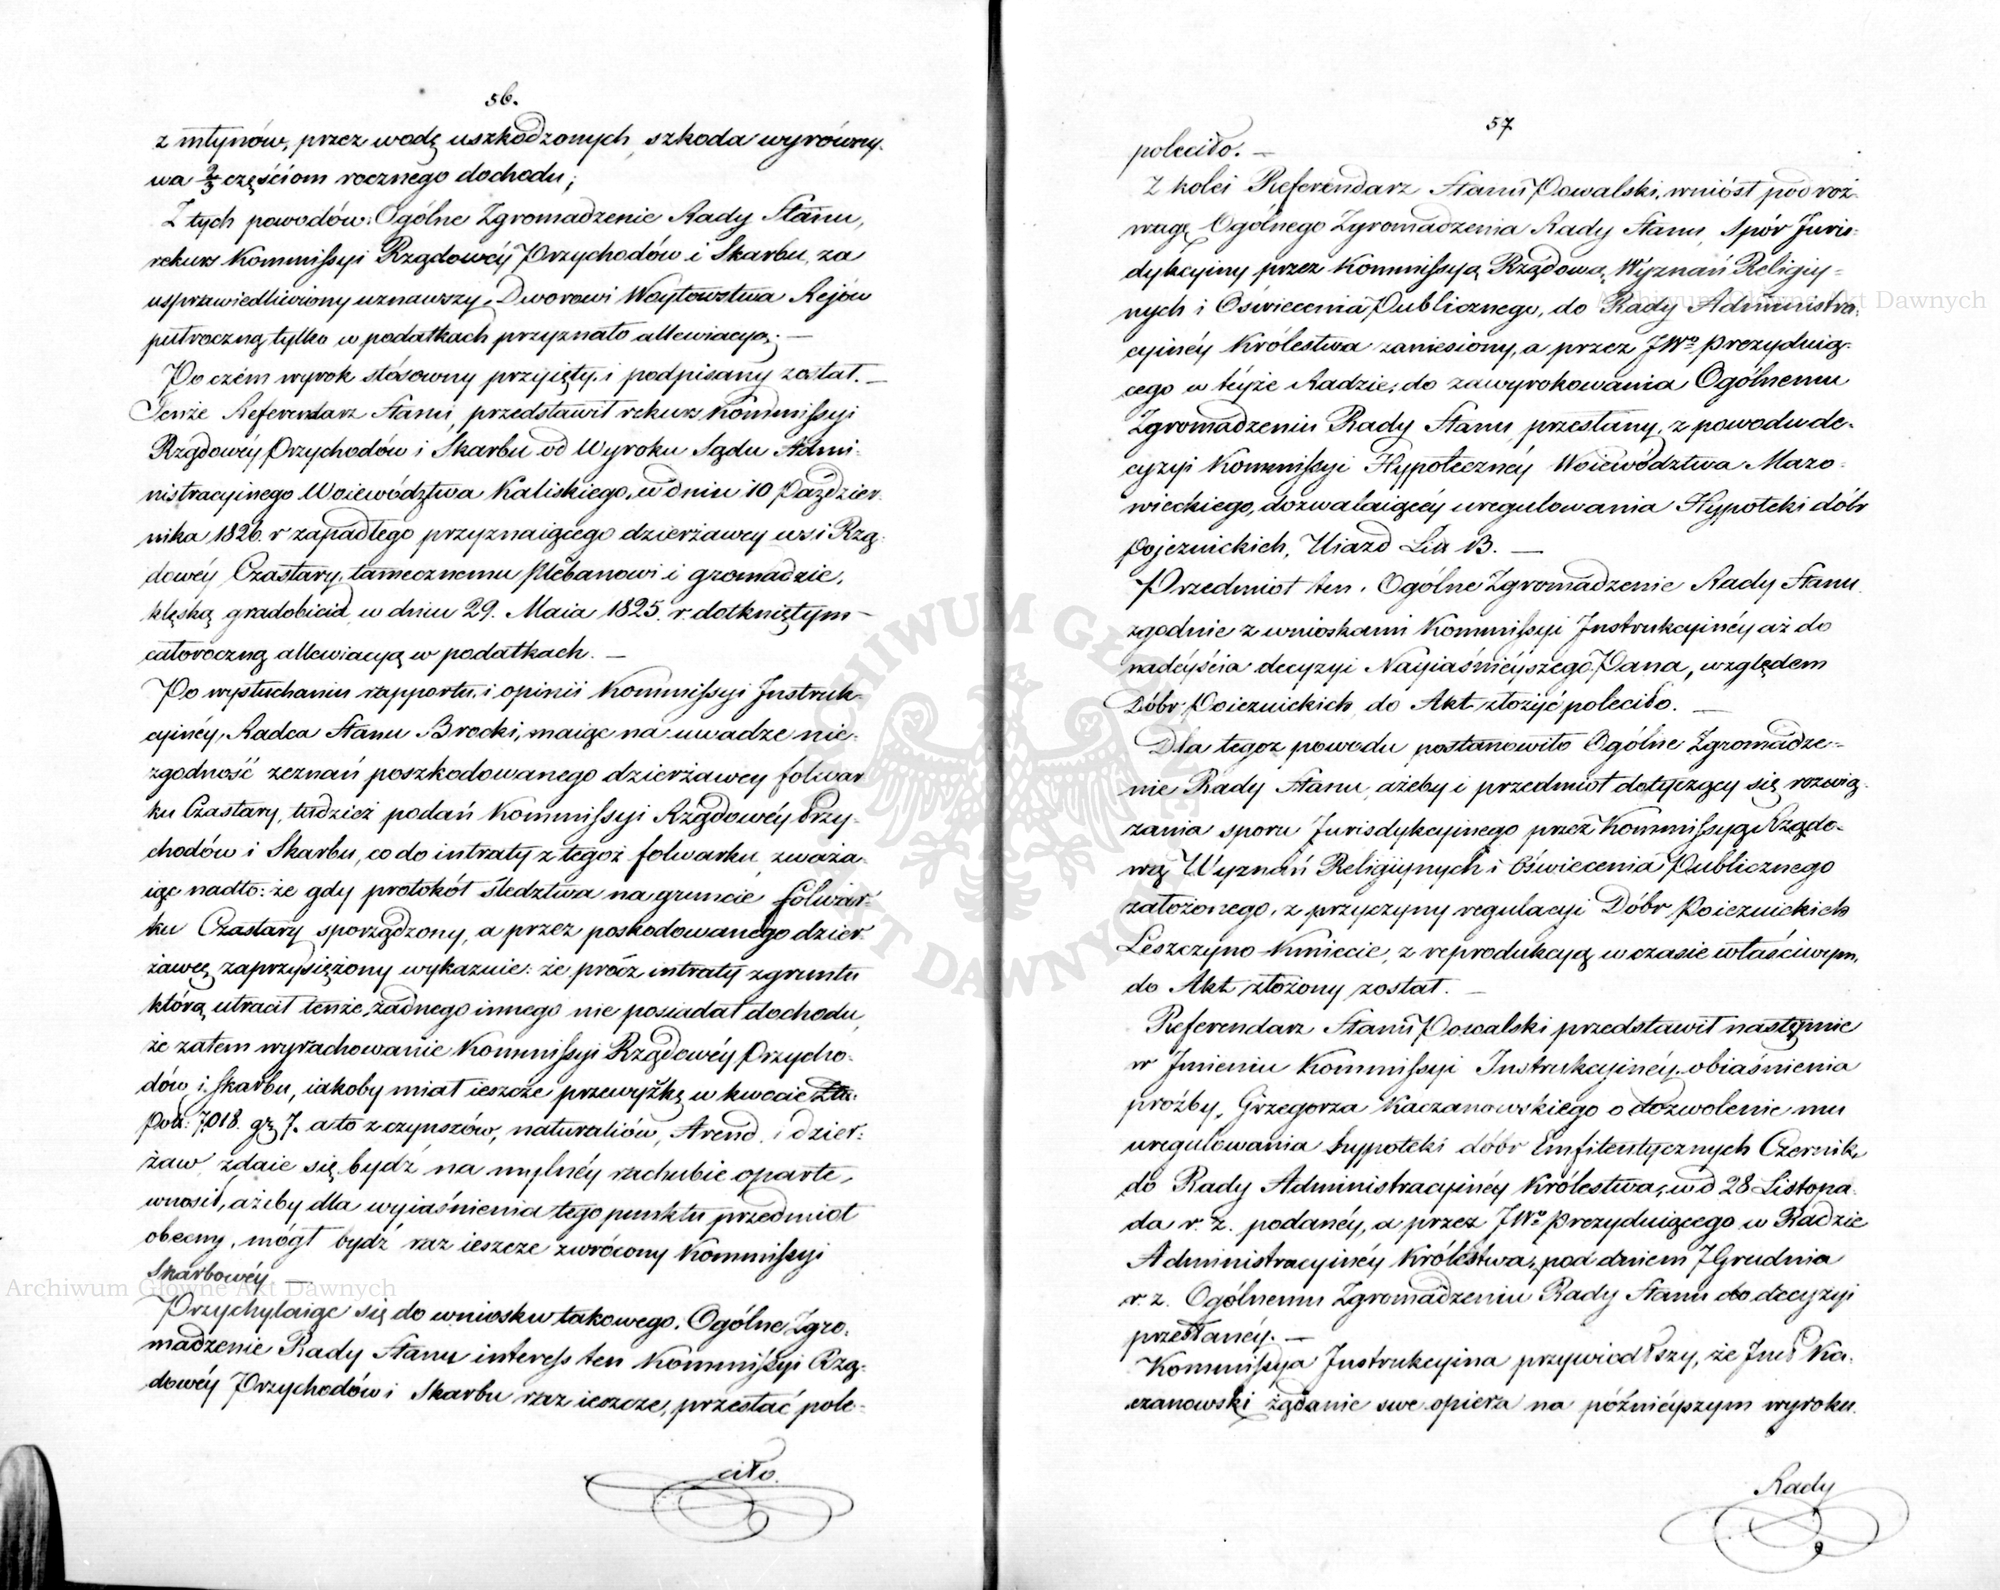 56.
z młynów, przez wodę uszkodzonych, szkoda wyrówny-
wa 2/3 częściom rocznego dochodu;
Z tych powodów: Ogólne Zgromadzenie Rady Stanu,
rekurs Kommissyi Rządowéy Przychodów i Skarbu, za
usprawiedliwiony uznawszy, Dworowi Woytowstwa Rejów
pułroczną tylko w podatkach przyznało allewiacyą. —
Po czém wyrok stósowny przyięty i podpisany został. —
Tenże Referendarz Stanu, przedstawił rekurs Kommissyi
Rządowéy Przychodów i Skarbu od Wyroku Sądu Admi-
nistracyinego Woiewództwa Kaliskiego, w dniu 10 Paździer-
nika 1826. r zapadłego przyznaiącego dzierżawcy wsi Rzą-
dowéy Czastary, tamecznemu Plebanowi i gromadzie,
klęską gradobicia w dniu 29. Maia 1825. r. dotkniętym —
całoroczną allewiacyą w podatkach. —
Po wysłuchaniu rapportu i opinii Kommissyi Instruk-
cyinéy, Radca Stanu Brocki, maiąc na uwadze nie-
zgodność zeznań poszkodowanego dzierżawcy folwar-
ku Czastary, tudzież podań Kommissyi Rządowéy Przy-
chodów i Skarbu, co do intraty z tegoż folwarku, zważa-
iąc nadto: że gdy protokół śledztwa na gruncie folwar-
ku Czastary sporządzony, a przez poskodowanego dzier-
żawcę zaprzysiężony wykazuie: że prócz intraty z gruntu
którą utracił tenże, żadnego innego nie posiadał dochodu,
że zatem wyrachowanie Kommissyi Rządowéy Przycho-
dów i Skarbu, iakoby miał ieszcze przewyżkę w kwocie złu.
Pol: 7018. gr 7. a to z czynszów, naturaliów, Arend, i dzier-
żaw, zdaie się bydź na mylnéy rachubie oparte,
wnosił, ażeby dla wyiaśnienia tego punktu przedmiot
obecny, mógł bydź raz ieszcze zwrócony Kommissyi
Skarbowéy —
Przychylaiąc się do wniosku takowego. Ogólne Zgro-
madzenie Rady Stanu interess ten Kommissyi Rzą-
dowéy Przychodów i Skarbu raz ieszcze, przesłać pole-
ciło.
57
poleciło. —
Z kolei Referendarz Stanu Powalski, wniósł pod roz-
wagę Ogólnego Zgromadzenia Rady Stanu, Spór Juris-
dykcyiny przez Kommissyą Rządową Wyznań Religiy-
nych i Oświecenia Publicznego, do Rady Administra-
cyinéy Królestwa zaniesiony, a przez JWo Prezyduią-
cego w téyże Radzie, do zawyrokowania Ogólnemu
Zgromadzeniu Rady Stanu przesłany, z powodu de-
cyzyi Kommissyi Hypoteczney Woiewództwa Mazo-
wieckiego, dozwalaiącéy uregulowania Hypoteki dóbr
Pojezuickich, Uiazd Litt B. —
Przedmiot ten, Ogólne Zgromadzenie Rady Stanu
zgodnie z wnioskami Kommissyi Instrukcyinéy aż do
nadéyścia decyzyi Nayiaśnieyszego Pana, względem
Dóbr Poiezuickich do Akt złożyć poleciło. —
Dla tegoż powodu postanowiło Ogólne Zgromadze-
nie Rady Stanu, ażeby i przedmiot dotyczący się rozwią-
zania sporu Jurisdykcyinego przez Kommissyą Rządo-
wą Wyznań Religiynych i Oświecenia Publicznego
założonego, z przyczyny regulacyi Dóbr Poiezuickich
Leszczyno Kmiecie, z reprodukcyą w czasie właściwym,
do Akt złożony został. —
Referendarz Stanu Powalski przedstawił następnie
w Jmieniu Kommissyi Instrukcyinéy, obiaśnienia
prożby, Grzegorza Kaczanowskiego o dozwolenie mu
uregulowania hypoteki dóbr Emfiteutycznych Czernik,
do Rady Administracyinéy Królestwa, w d 28 Listopa-
da r. z. podanéy, a przez JWo Prezyduiącego w Radzie
Administracyinéy Królestwa, pod dniem 7 Grudnia
r. z. Ogólnemu Zgromadzeniu Rady Stanu do decyzyi
przesłanéy. —
Kommissya Instrukcyina przywiodłszy, że Jmć Ka-
czanowski żądanie swe opiera na późnieyszym wyroku
Rady
Archiwum Główne Akt Dawnych
Archiwum Główne Akt Dawnych
ARCHIWUM GŁÓWNE AKT DAWNYCH